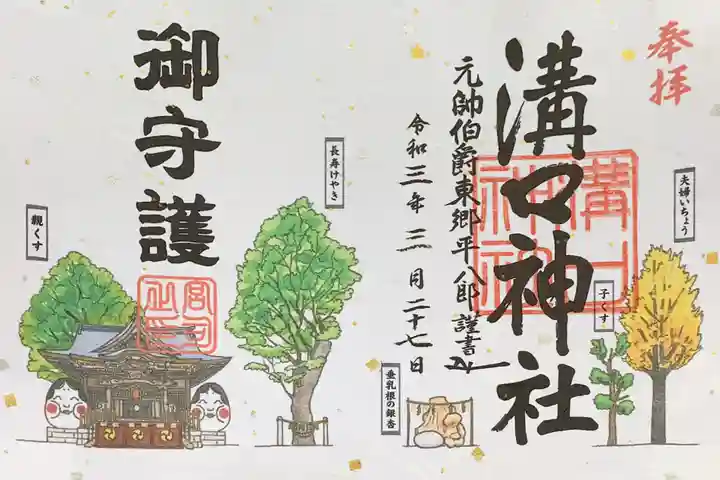 奉拝
溝口神社
元帥伯爵東郷平八郎謹書
令和三年三月二十七日
夫婦いちょう
子くす
垂乳根の銀杏
長寿けやき
御守護
親くす
溝口神社
宮司之印